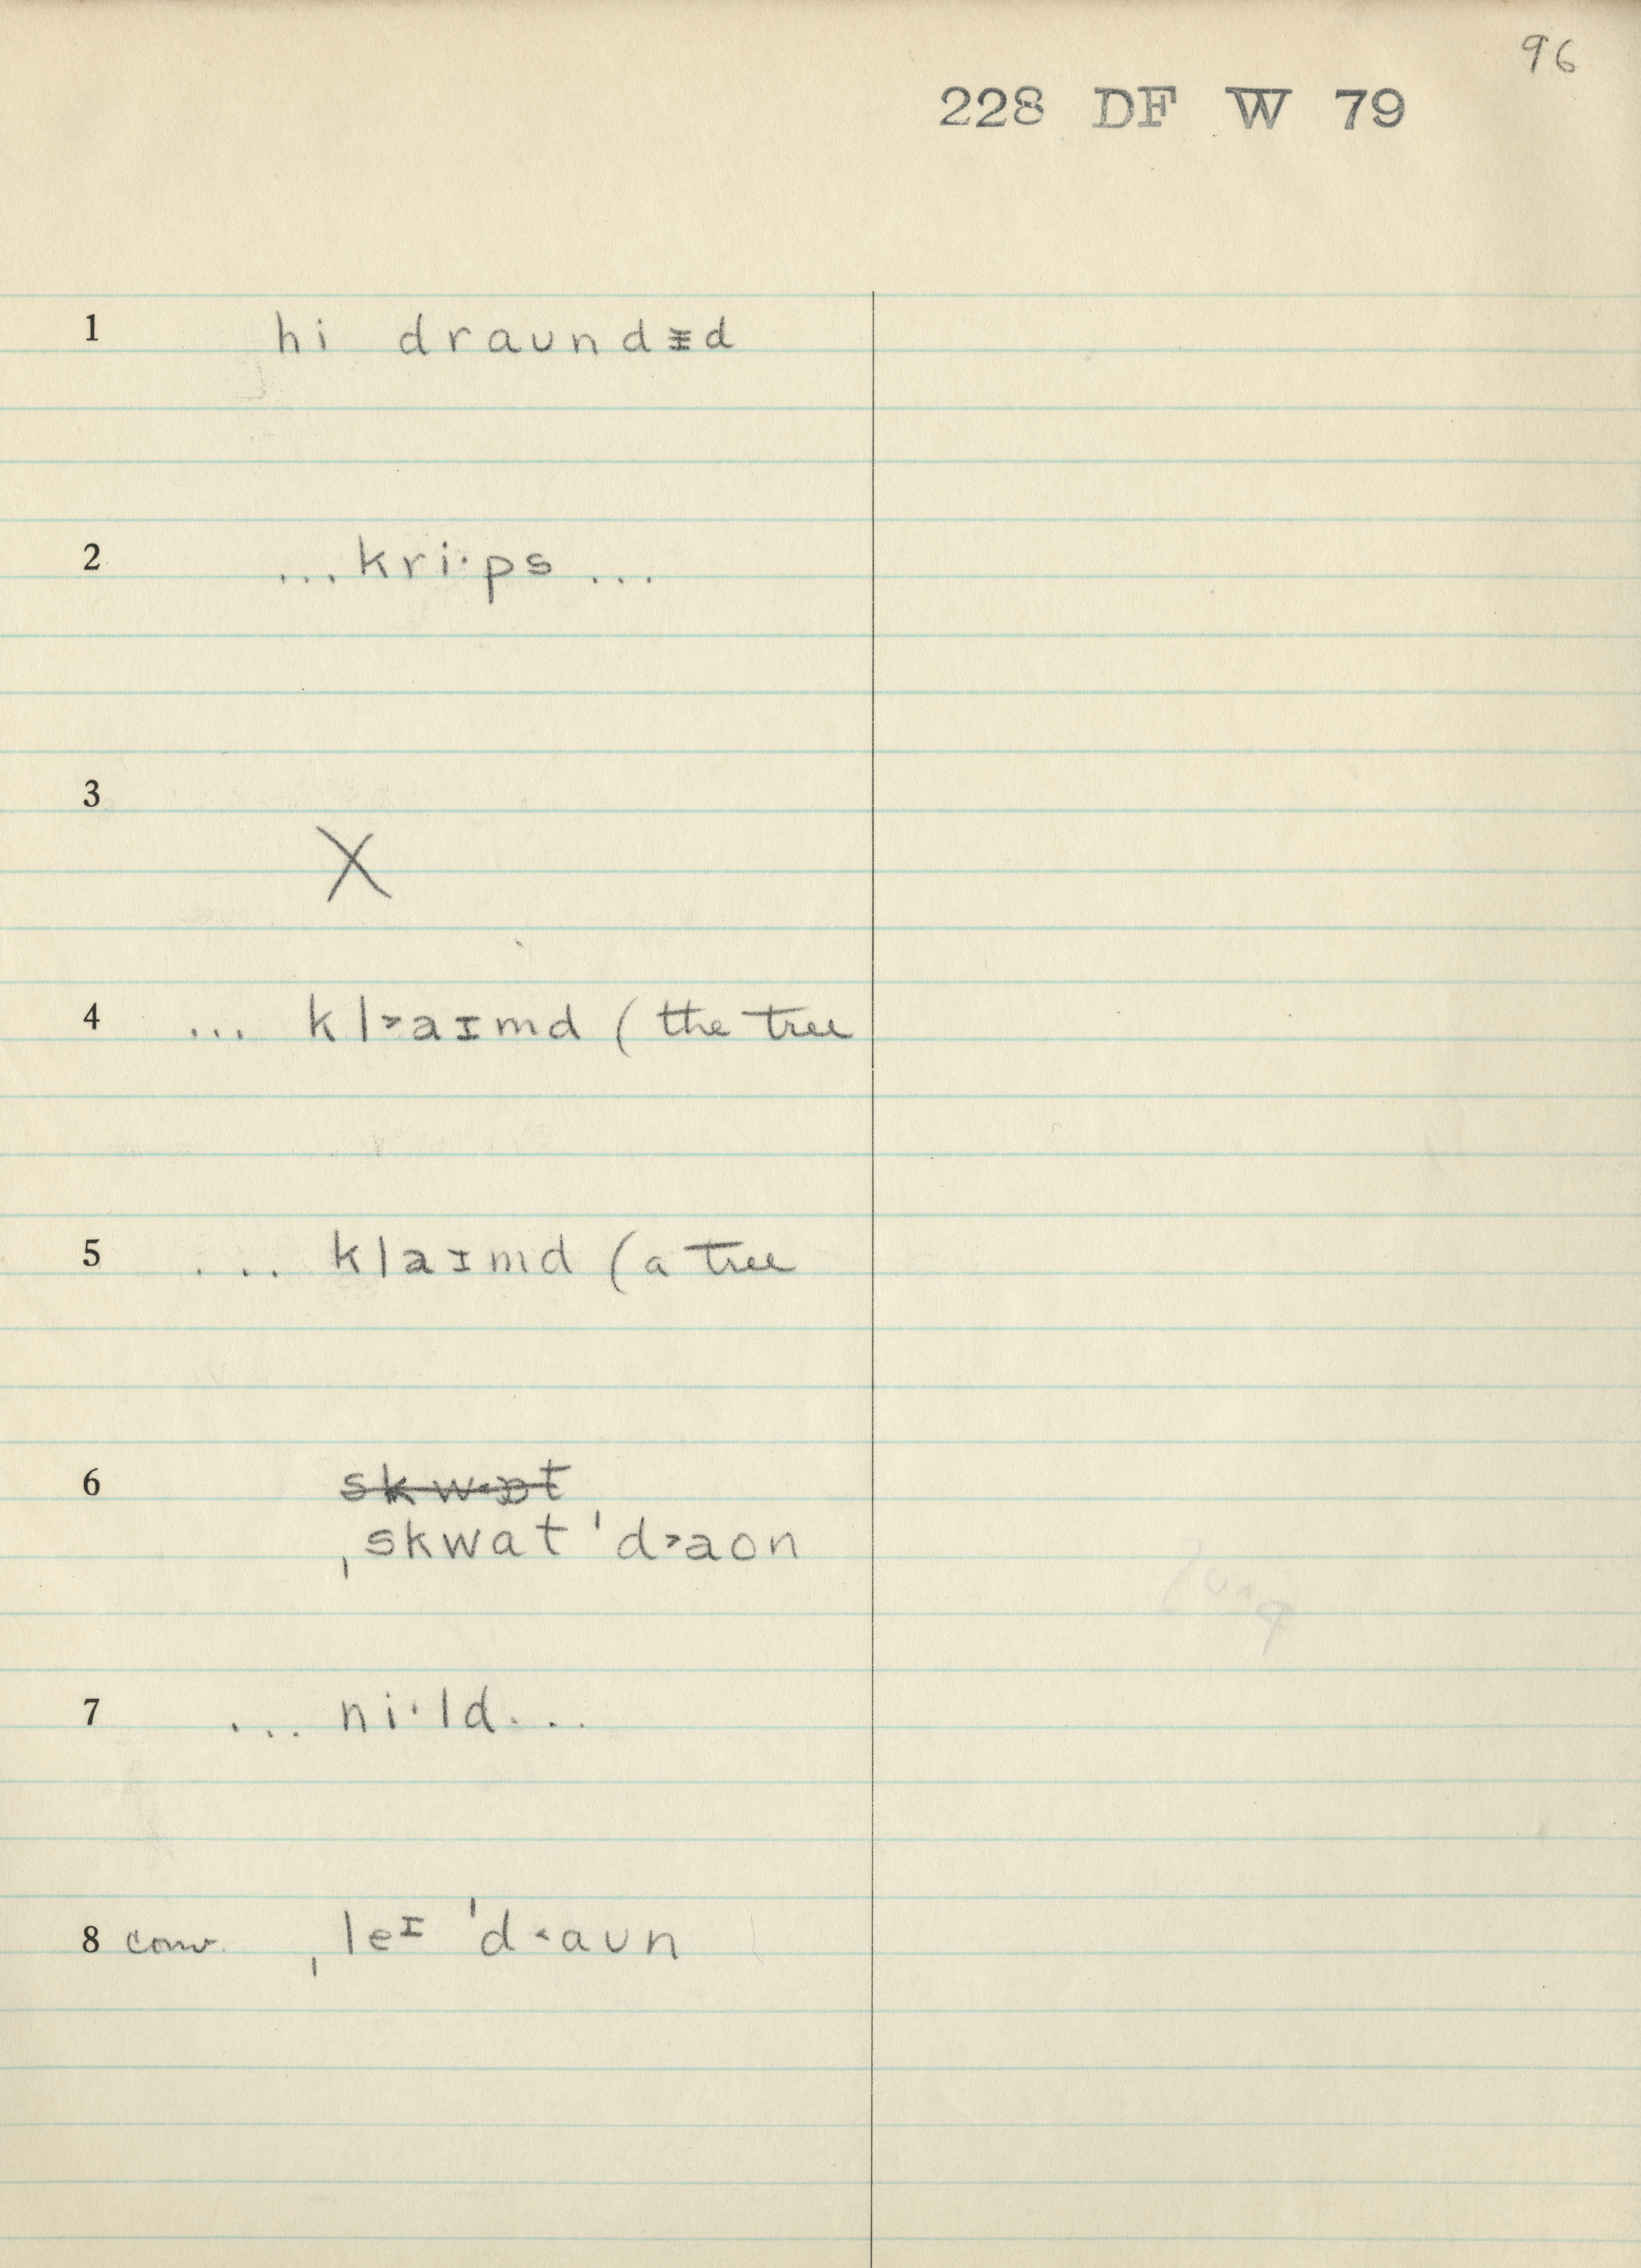 96
228 DF W 79
1 hi draʊndɪ̵d
2 ...kri·ps ...
3 X
4 ... kl˃aɪmd (the tree
5 ... klaɪmd (a tree
6 skw˂ɒt
ˌskwat ˈd˃aon
7 ... ni·ld...
8 conv. ˌleᶦ ˈd˂aʊn